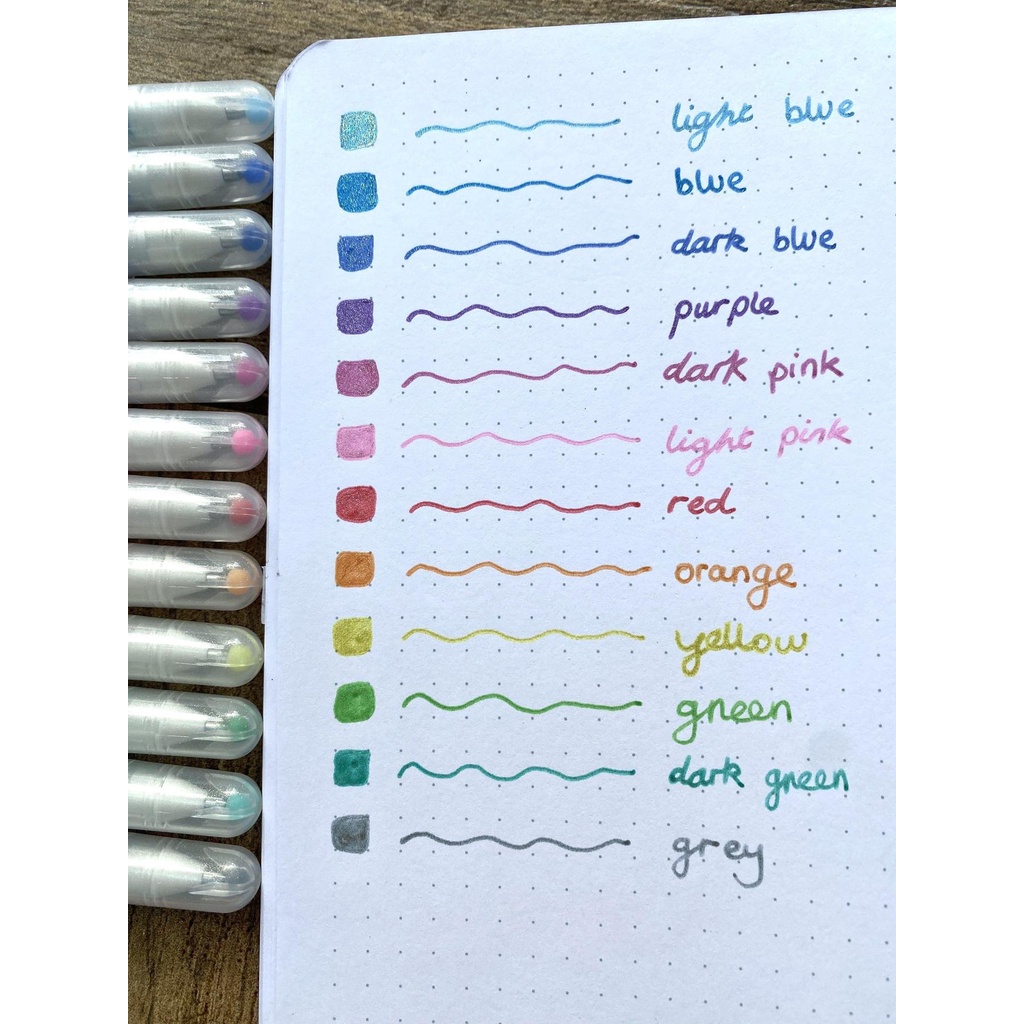 light blue
blue
dark blue
purple
dark pink
light pink
red
orange
yellow
green
dark green
grey